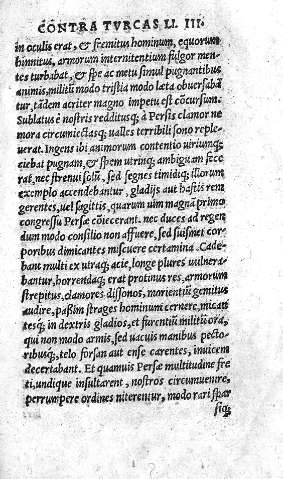 CONTRA TVRCAS LI. III.
in oculis erat, & fremitus hominum, equorum
hinnitus, armorum internitentium fulgor men-
tes turbabat, & spe ac metu simul pugnantibus
animis, militũ modo tristia modo læta obuersabã
tur, tãdem acriter magno impetu est cõcursum.
Sublatus è nostris redditusq; à Persis clamor ne
mora circumiectasq; ualles terribili sono reple-
uerat. Ingens ibi animorum contentio utrinq;
ciebat pugnam, & spem utrinq; ambiguam fece
rat, nec strenui solũ, sed segnes timidiq; illorum
exemplo accendebantur, gladijs aut hastis rem
gerentes, uel sagittis, quarum uim magnã primo
congressu Persæ cõiecerant. nec duces ad regen
dum modo consilio non affuere, sed suismet cor
poribus dimicantes miscuere certamina. Cade-
bant multi ex utraq; acie, longe plures uulnera-
bantur, horrendaq; erat protinus res, armorum
strepitus, clamores dissonos, morientiũ gemitus
audire, passim strages hominum cernere, mican
tesq; in dextris gladios, et furentiũ militũ ora,
qui non modo armis, sed uacuis manibus pecto-
ribusq;, telo forsan aut ense carentes, inuicem
decertabant. Et quamuis Persæ multitudine fre
ti, undique insultarent, nostros circumuenire,
perrumpere ordines niterentur, modo rari spar
siq;